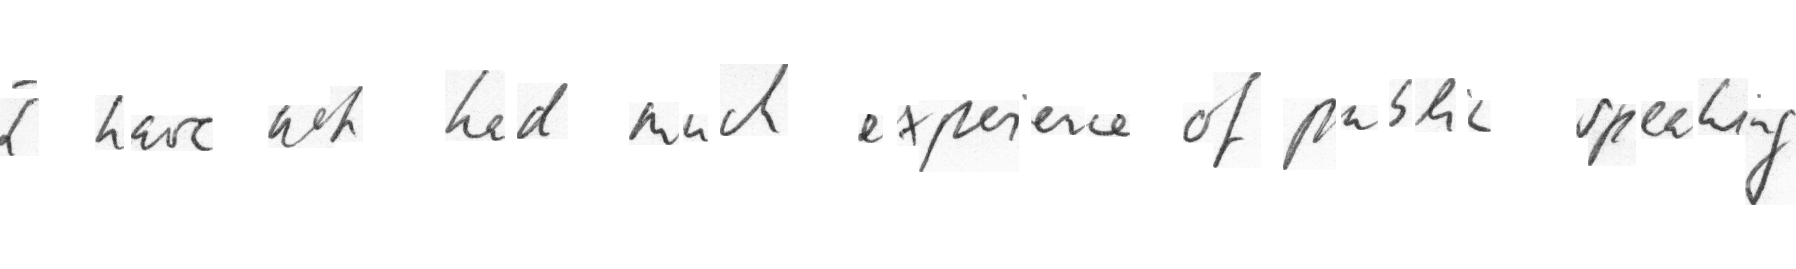 I have not had much experience of public speaking